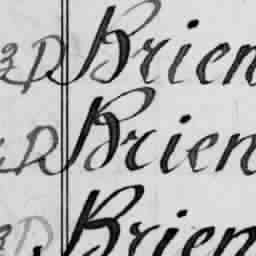 D Brien
D Brien
D Brien